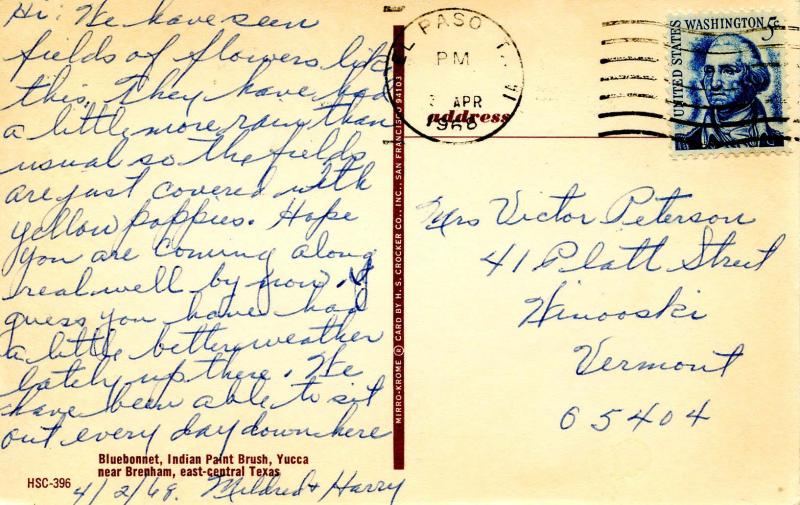 Hi: We have seen
fields of flowers like
this. They have had
a little more rain than
usual so the fields
are just covered with
yellow poppies. Hope
you are coming along
real well by now. I
guess you have had
a little better weather
lately up there. We
have been able to sit
out every day down here
Bluebonnet, Indian Paint Brush, Yucca
near Brenham, east-central Texas
HSC-396
4/2/68. Mildred & Harry
MIRRO-KROME ® CARD BY H. S. CROCKER CO., INC., SAN FRANCISCO 94103
EL PASO
PM
APR
1968
address
UNITED STATES
WASHINGTON 5c
Mrs Victor Peterson
41 Platt Street
Winooski
Vermont
65404